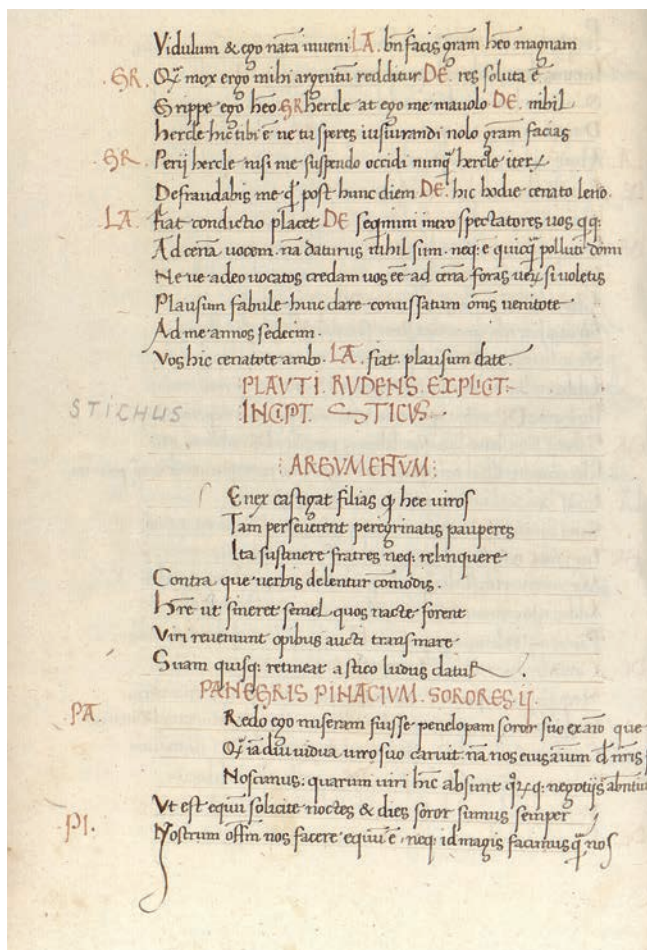 Vidulum & ego nata inveni LA. bn facis gram heo magnam
GR. Qr mox ergo mihi argentu redditur DE. res soluta e
Grippe ego heo GR hercle at ego me mavolo DE. nihil
hercle hic tibi e ne tu speres iusiurandi nolo gram facias
GR. Perij hercle nisi me suspendo occidi nunq hercle iter
Defraudabis me post hunc diem DE. hic hodie cenato leno.
LA. fiat condictio placet DE seqmini intro spectatores uos qq:
Ad cena uocem. na daturus nihil sum. neq: e quicq polluti domi
Neve adeo uocatos credam uos ee ad cena foras uer si voletis
Plausum fabule huic dare comissatum oms venitote
Ad me annos sedecim.
Vos hic cenatote ambo. LA. fiat. plausum date.
PLAVTI. RVDENS. EXPLICT.
STICHUS
INCIPT. STICVS.
: ARGVMENTVM :
Enex castigat filias q hee viros
Tam perseverent peregrinatis pauperes
Ita sustinere fratres neq. relinquere
Contra que uerbis delentur comodis.
Hre ut sineret semel quos nacte forent
Viri reveniunt opibus aucti transmare
Suam quisq: retineat a stico ludus datur.
PANEGRIS PINACIVM. SORORES ij.
PA. Redo ego miseram fuisse penelopam soror suo exaio que
Qr ia diu vidua viro suo caruit. na nos eius aium nris
Noscimus: quarum viri hic absunt negotijs abntiu
Vt est equu solicite noctes & dies soror sumus semper
PI. Nostrum offm nos facere equu e. neq: id magis facimus q nos